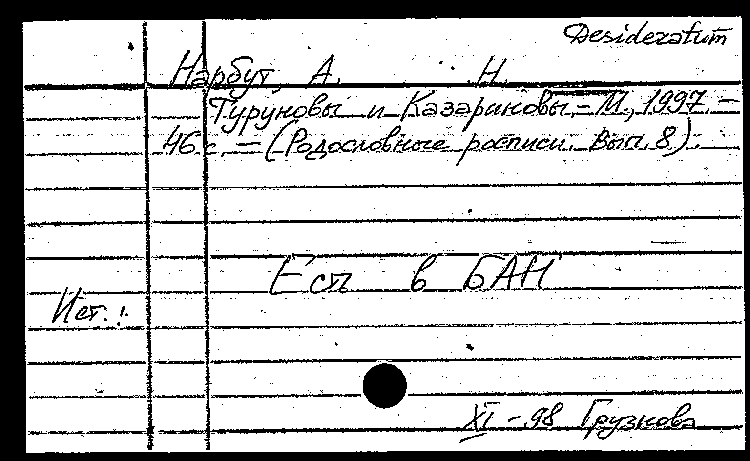 Desideratum
Нарбут, А. Н.
Туруновы и Казариновы. – М., 1997. –
46 с. – (Родословные росписи. Вып. 8).
Есть в БАН
Ист.:
XI – 98 Грузнова